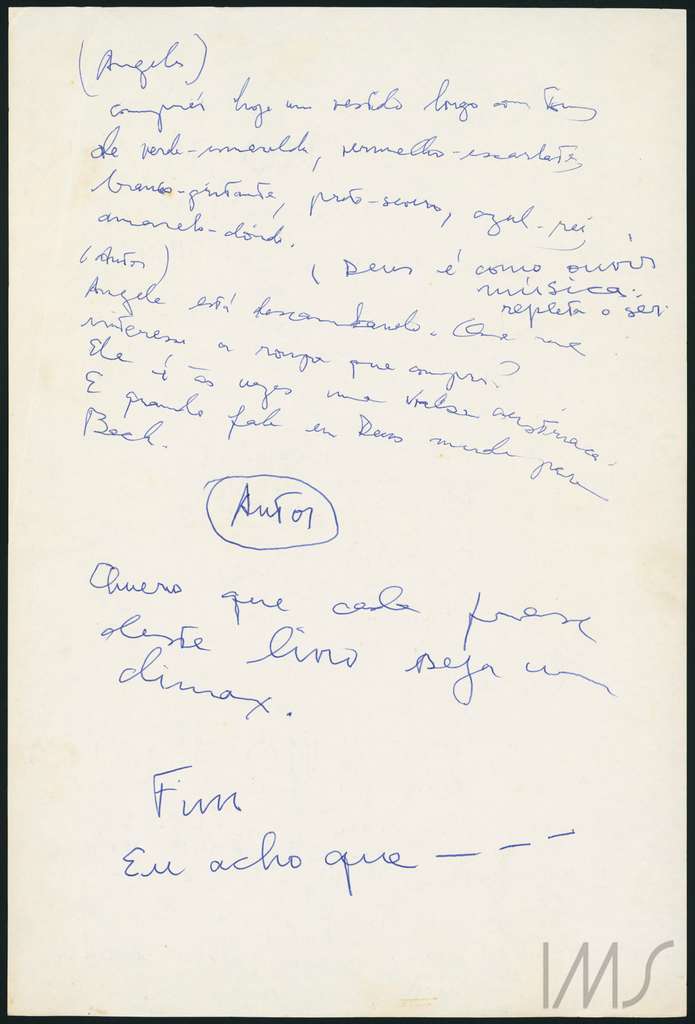 (Angela)
comprei hoje um vestido longo com tons
de verde-esmeralda, vermelho-escarlate,
branco-gritante, preto-severo, azul-rei,
amarelo-dôndo.
(Autor)
( Deus é como ouvir
música:
repleta o ser.
Angela está descambando. Que me
interessa a roupa que comprou?
Ela é às vezes uma valsa austríaca.
E quando fala em Deus muda para
Bach.
Autor
Quero que cada frase
deste livro seja um
climax.
Fim
Eu acho que — — —
IMS